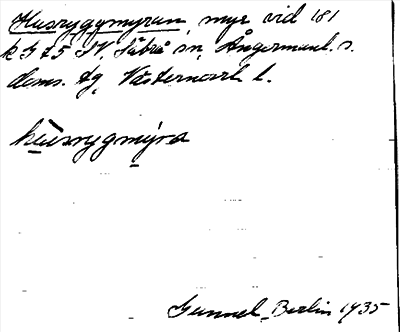 Husryggmyran, myr vid 181
k 3 t 5 N. Säbrå sn, Ångermanl. s.
doms. tg, Västernorrl. l.
húsrygmýra
Gunnel Berlin 1935